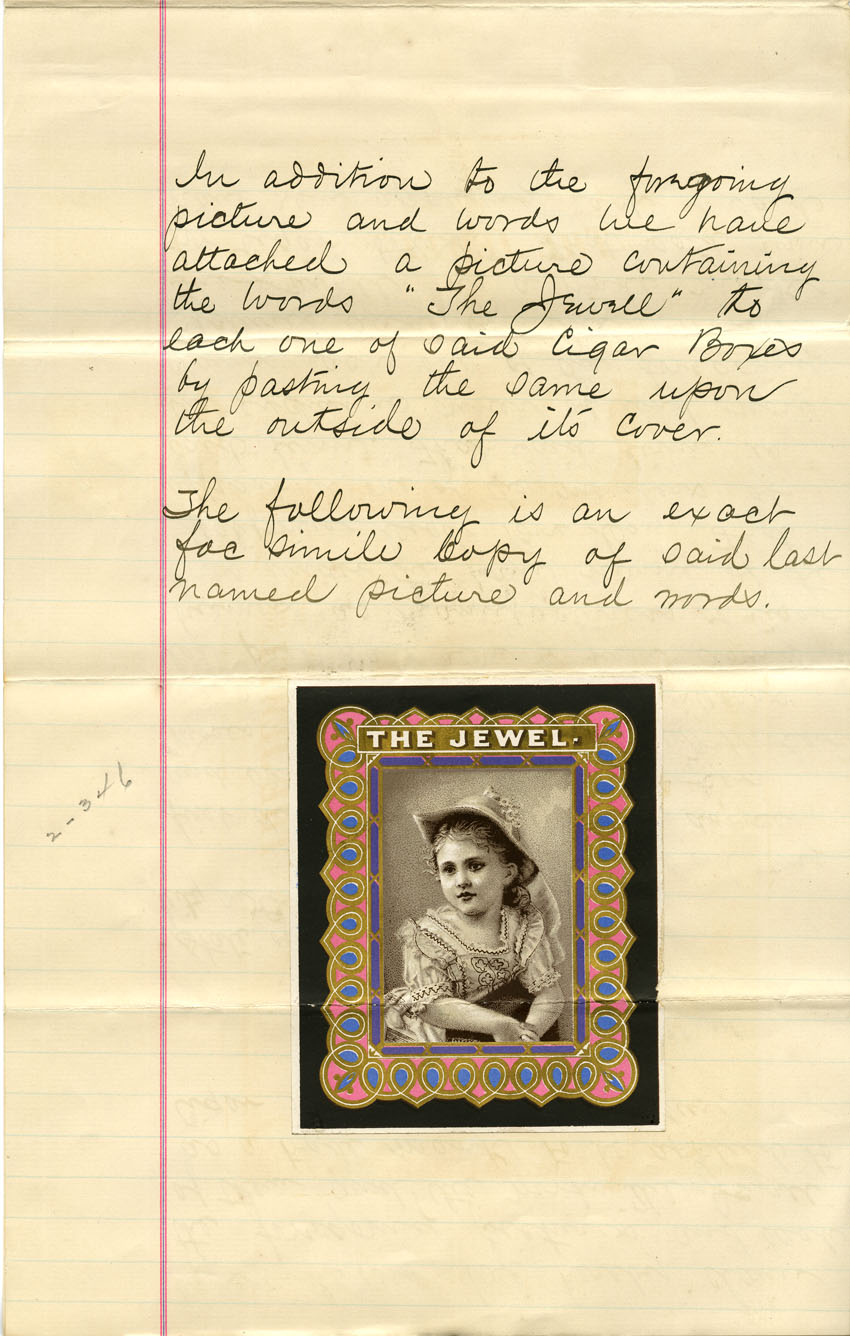 In addition to the foregoing
picture and words we have
attached a picture containing
the words "The Jewell" to
each one of said Cigar Boxes
by pasting the same upon
the outside of it's cover.
The following is an exact
fac simile Copy of said last
named picture and words.
THE JEWEL.
2-346